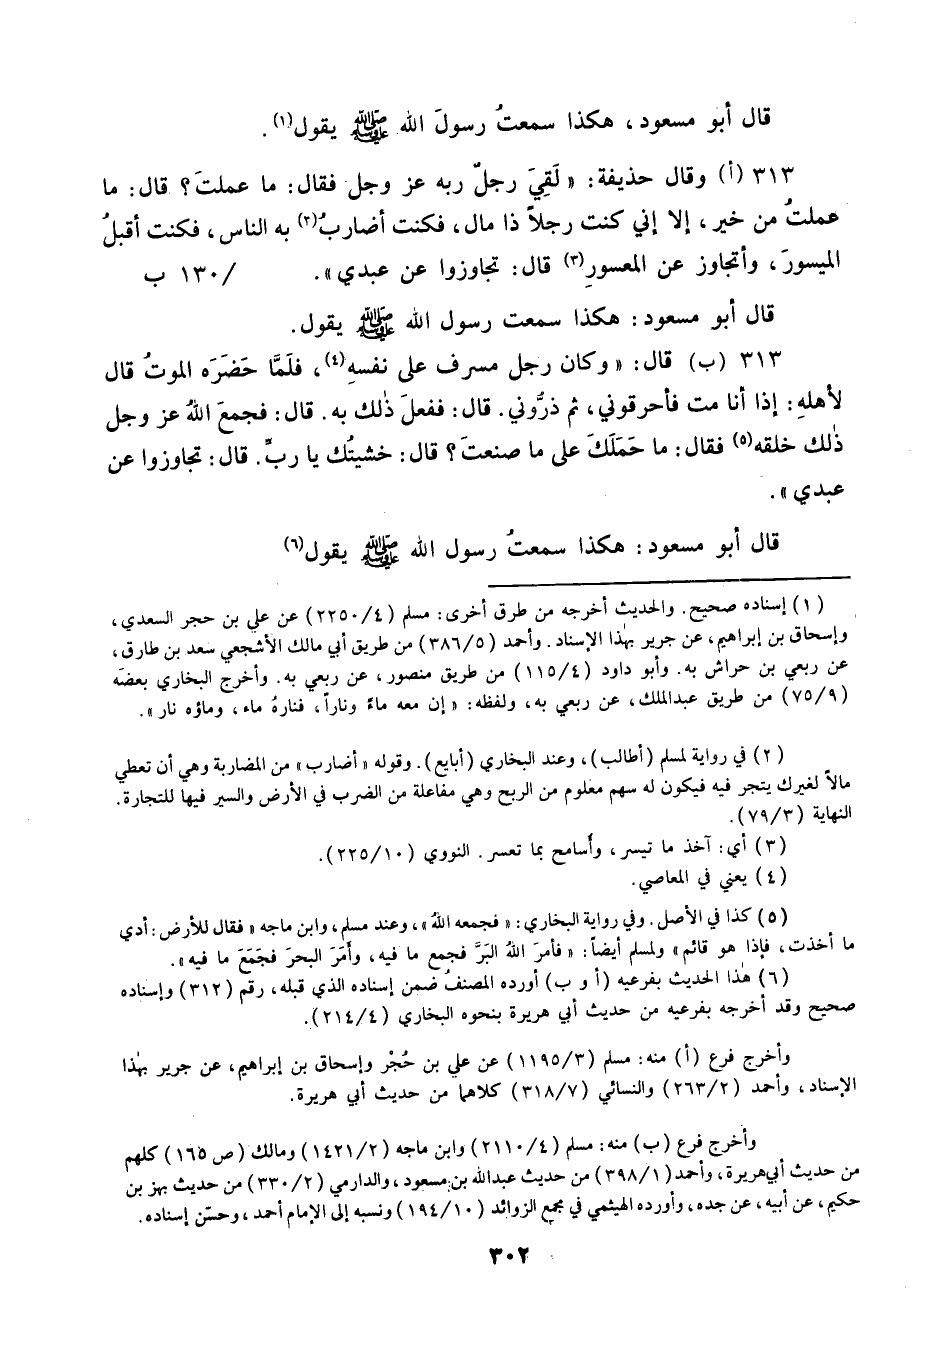 قال أبو مسعود ، هكذا سمعتُ رسولَ الله ﷺ يقول(١) .
٣١٣ (أ) وقال حذيفة: « لَقِيَ رجلٌ ربه عز وجل فقال: ما عملتَ؟ قال: ما
عملتُ من خير ، إلا إني كنت رجلاً ذا مال ، فكنت أضاربُ(٢) به الناس ، فكنت أقبلُ
الميسورَ ، وأتجاوز عن المعسورِ(٣) قال: تجاوزوا عن عبدي» . /١٣٠ ب
قال أبو مسعود: هكذا سمعت رسول الله ﷺ يقول.
٣١٣ (ب) قال: « وكان رجل مسرف على نفسهِ(٤) ، فلَمَّا حَضَرَه الموتُ قال
لأهلهِ: إذا أنا مت فأحرقوني ، ثم ذرُّوني. قال: ففعلَ ذٰلك به. قال: فجمعَ اللهُ عز وجل
ذٰلك خلقه(٥) فقال: ما حَمَلَكَ على ما صنعتَ؟ قال: خشيتُك يا ربِّ. قال: تجاوزوا عن
عبدي» .
قال أبو مسعود: هكذا سمعتُ رسول الله ﷺ يقول(٦)
(١) إسناده صحيح. والحديث أخرجه من طرق أخرى: مسلم (٢٢٥٠/٤) عن علي بن حجر السعدي ،
وإسحاق بن إبراهيم ، عن جرير بهٰذا الإسناد. وأحمد (٣٨٦/٥) من طريق أبي مالك الأشجعي سعد بن طارق ،
عن ربعي بن حراش به. وأبو داود (١١٥/٤) من طريق منصور ، عن ربعي به. وأخرج البخاري بعضَه
(٧٥/٩) من طريق عبدالملك ، عن ربعي به ، ولفظه: « إن معه ماءً وناراً ، فنارهُ ماء ، وماؤه نار» .
(٢) في رواية لمسلم (أطالب) ، وعند البخاري (أبايع). وقوله «أضارب» من المضاربة وهي أن تعطي
مالاً لغيرك يتجر فيه فيكون له سهم معلوم من الربح وهي مفاعلة من الضرب في الأرض والسير فيها للتجارة.
النهاية (٧٩/٣).
(٣) أي: آخذ ما تيسر ، وأسامح بما تعسر. النووي (٢٢٥/١٠).
(٤) يعني في المعاصي.
(٥) كذا في الأصل. وفي رواية البخاري: «فجمعه اللهُ» ، وعند مسلم ، وابن ماجه «فقال للأرض: أدي
ما أخذت ، فإذا هو قائم» ولمسلم أيضاً: «فأمرَ اللهُ البَرَّ فجمع ما فيه ، وأَمَرَ البحرَ فجَمَعَ ما فيه» .
(٦) هٰذا الحديث بفرعيه (أ و ب) أورده المصنفُ ضمن إسناده الذي قبله ، رقم (٣١٢) وإسناده
صحيح وقد أخرجه بفرعيه من حديث أبي هريرة بنحوه البخاري (٢١٤/٤).
وأخرج فرع (أ) منه: مسلم (١١٩٥/٣) عن علي بن حُجْر وإسحاق بن إبراهيم ، عن جرير بهٰذا
الإسناد ، وأحمد (٢٦٣/٢) والنسائي (٣١٨/٧) كلاهما من حديث أبي هريرة.
وأخرج فرع (ب) منه: مسلم (٢١١٠/٤) وابن ماجه (١٤٢١/٢) ومالك (ص ١٦٥) كلهم
من حديث أبي هريرة ، وأحمد (٣٩٨/١) من حديث عبدالله بن مسعود ، والدارمي (٣٣٠/٢) من حديث بهز بن
حكيم ، عن أبيه ، عن جده ، وأورده الهيثمي في مجمع الزوائد (١٩٤/١٠) ونسبه إلى الإمام أحمد ، وحسّن إسناده.
٣٠٢